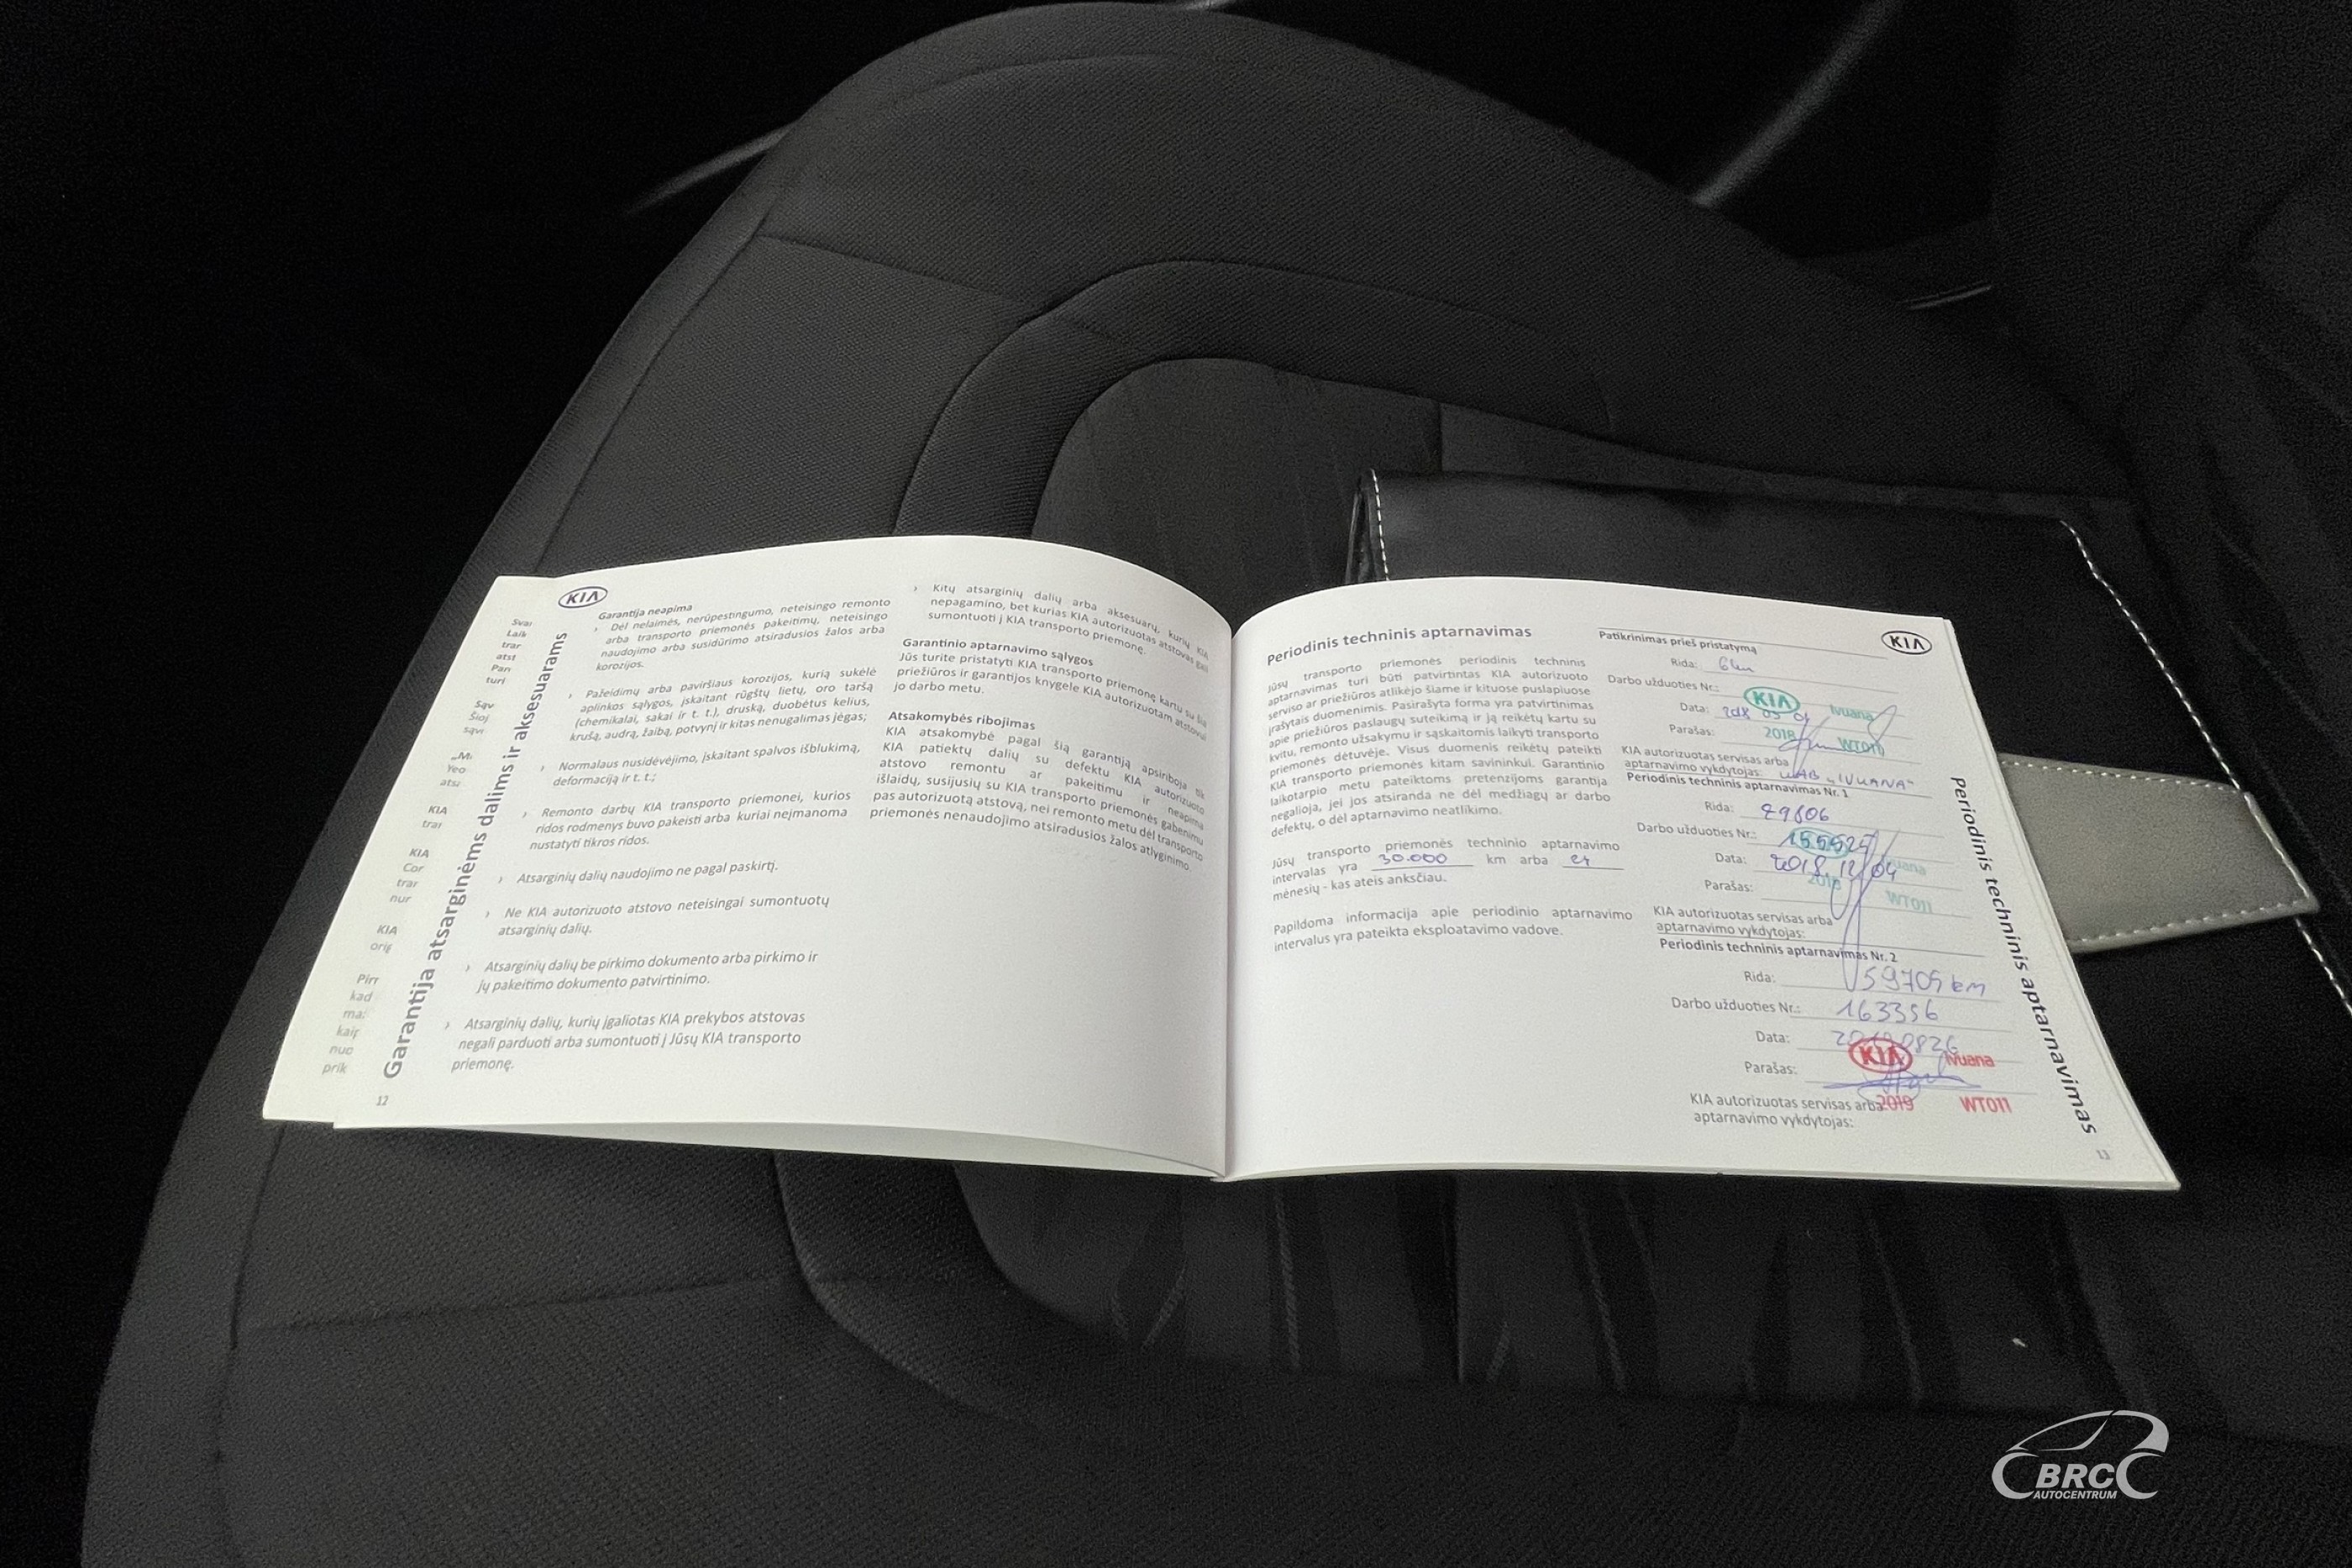 KIA
Garantija atsarginėms dalims ir aksesuarams
Garantija neapima
› Dėl nelaimės, nerūpestingumo, neteisingo remonto
arba transporto priemonės pakeitimų, neteisingo
naudojimo arba susidūrimo atsiradusios žalos arba
korozijos.
› Pažeidimų arba paviršiaus korozijos, kurią sukėlė
aplinkos sąlygos, įskaitant rūgštų lietų, oro taršą
(chemikalai, sakai ir t. t.), druską, duobėtus kelius,
krušą, audrą, žaibą, potvynį ir kitas nenugalimas jėgas;
› Normalaus nusidėvėjimo, įskaitant spalvos išblukimą,
deformaciją ir t. t.;
› Remonto darbų KIA transporto priemonei, kurios
ridos rodmenys buvo pakeisti arba kuriai neįmanoma
nustatyti tikros ridos.
› Atsarginių dalių naudojimo ne pagal paskirtį.
› Ne KIA autorizuoto atstovo neteisingai sumontuotų
atsarginių dalių.
› Atsarginių dalių be pirkimo dokumento arba pirkimo ir
jų pakeitimo dokumento patvirtinimo.
› Atsarginių dalių, kurių įgaliotas KIA prekybos atstovas
negali parduoti arba sumontuoti į Jūsų KIA transporto
priemonę.
12
› Kitų atsarginių dalių arba aksesuarų, kurių KIA
nepagamino, bet kurias KIA autorizuotas atstovas gali
sumontuoti į KIA transporto priemonę.
Garantinio aptarnavimo sąlygos
Jūs turite pristatyti KIA transporto priemonę kartu su šia
priežiūros ir garantijos knygele KIA autorizuotam atstovui
jo darbo metu.
Atsakomybės ribojimas
KIA atsakomybė pagal šią garantiją apsiriboja tik
KIA patiektų dalių su defektu KIA autorizuoto
atstovo remontu ar pakeitimu ir neapima
išlaidų, susijusių su KIA transporto priemonės gabenimu
pas autorizuotą atstovą, nei remonto metu dėl transporto
priemonės nenaudojimo atsiradusios žalos atlyginimo
Periodinis techninis aptarnavimas
Jūsų transporto priemonės periodinis techninis
aptarnavimas turi būti patvirtintas KIA autorizuoto
serviso ar priežiūros atlikėjo šiame ir kituose puslapiuose
įrašytais duomenimis. Pasirašyta forma yra patvirtinimas
apie priežiūros paslaugų suteikimą ir ją reikėtų kartu su
kvitu, remonto užsakymu ir sąskaitomis laikyti transporto
priemonės dėtuvėje. Visus duomenis reikėtų pateikti
KIA transporto priemonės kitam savininkui. Garantinio
laikotarpio metu pateiktoms pretenzijoms garantija
negalioja, jei jos atsiranda ne dėl medžiagų ar darbo
defektų, o dėl aptarnavimo neatlikimo.
Jūsų transporto priemonės techninio aptarnavimo
intervalas yra 30.000 km arba 24
mėnesių - kas ateis anksčiau.
Papildoma informacija apie periodinio aptarnavimo
intervalus yra pateikta eksploatavimo vadove.
KIA
Patikrinimas prieš pristatymą
Rida: 6km
Darbo užduoties Nr.:
KIA Ivuana
Data:
Parašas: 2018 WT011
KIA autorizuotas servisas arba
aptarnavimo vykdytojas: UAB „IVUANA"
Periodinis techninis aptarnavimas Nr. 1
Rida: 29606
Darbo užduoties Nr.:
Data: 2018.12.04
Parašas: WT011
KIA autorizuotas servisas arba
aptarnavimo vykdytojas:
Periodinis techninis aptarnavimas Nr. 2
Rida: 59709 km
Darbo užduoties Nr.: 163356
Data: 20190826
KIA Ivuana
Parašas:
KIA autorizuotas servisas arba 2019 WT011
aptarnavimo vykdytojas:
Periodinis techninis aptarnavimas
13
BRC
AUTOCENTRUM